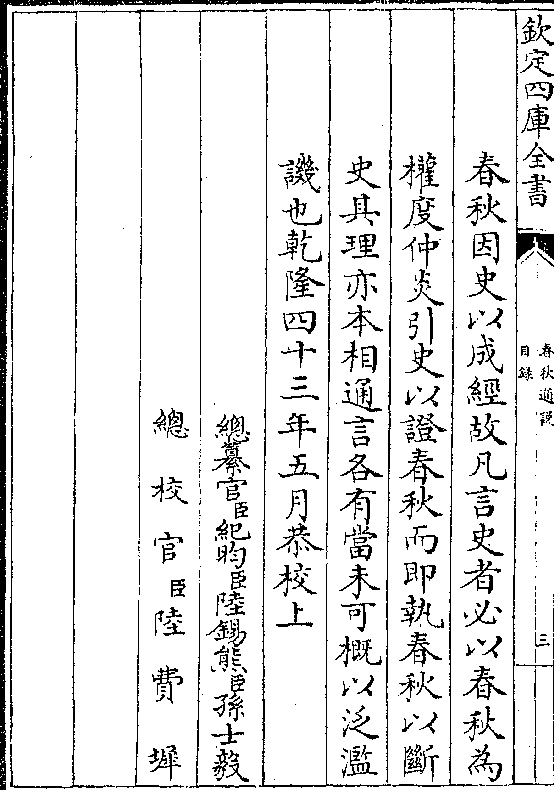 欽定四庫全書
春秋通說
目錄
三
春秋因史以成經故凡言史者必以春秋為
權度仲炎引史以證春秋而即執春秋以斷
史其理亦本相通言各有當未可概以泛濫
譏也乾隆四十三年五月恭校上
總纂官臣紀昀臣陸錫熊臣孫士毅
總校官臣陸費墀